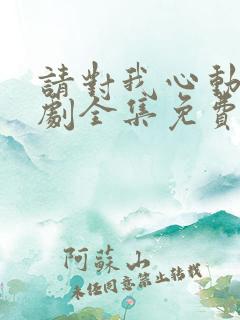 請對我心動
劇全集免費
阿蘇山
未经同意禁止转载